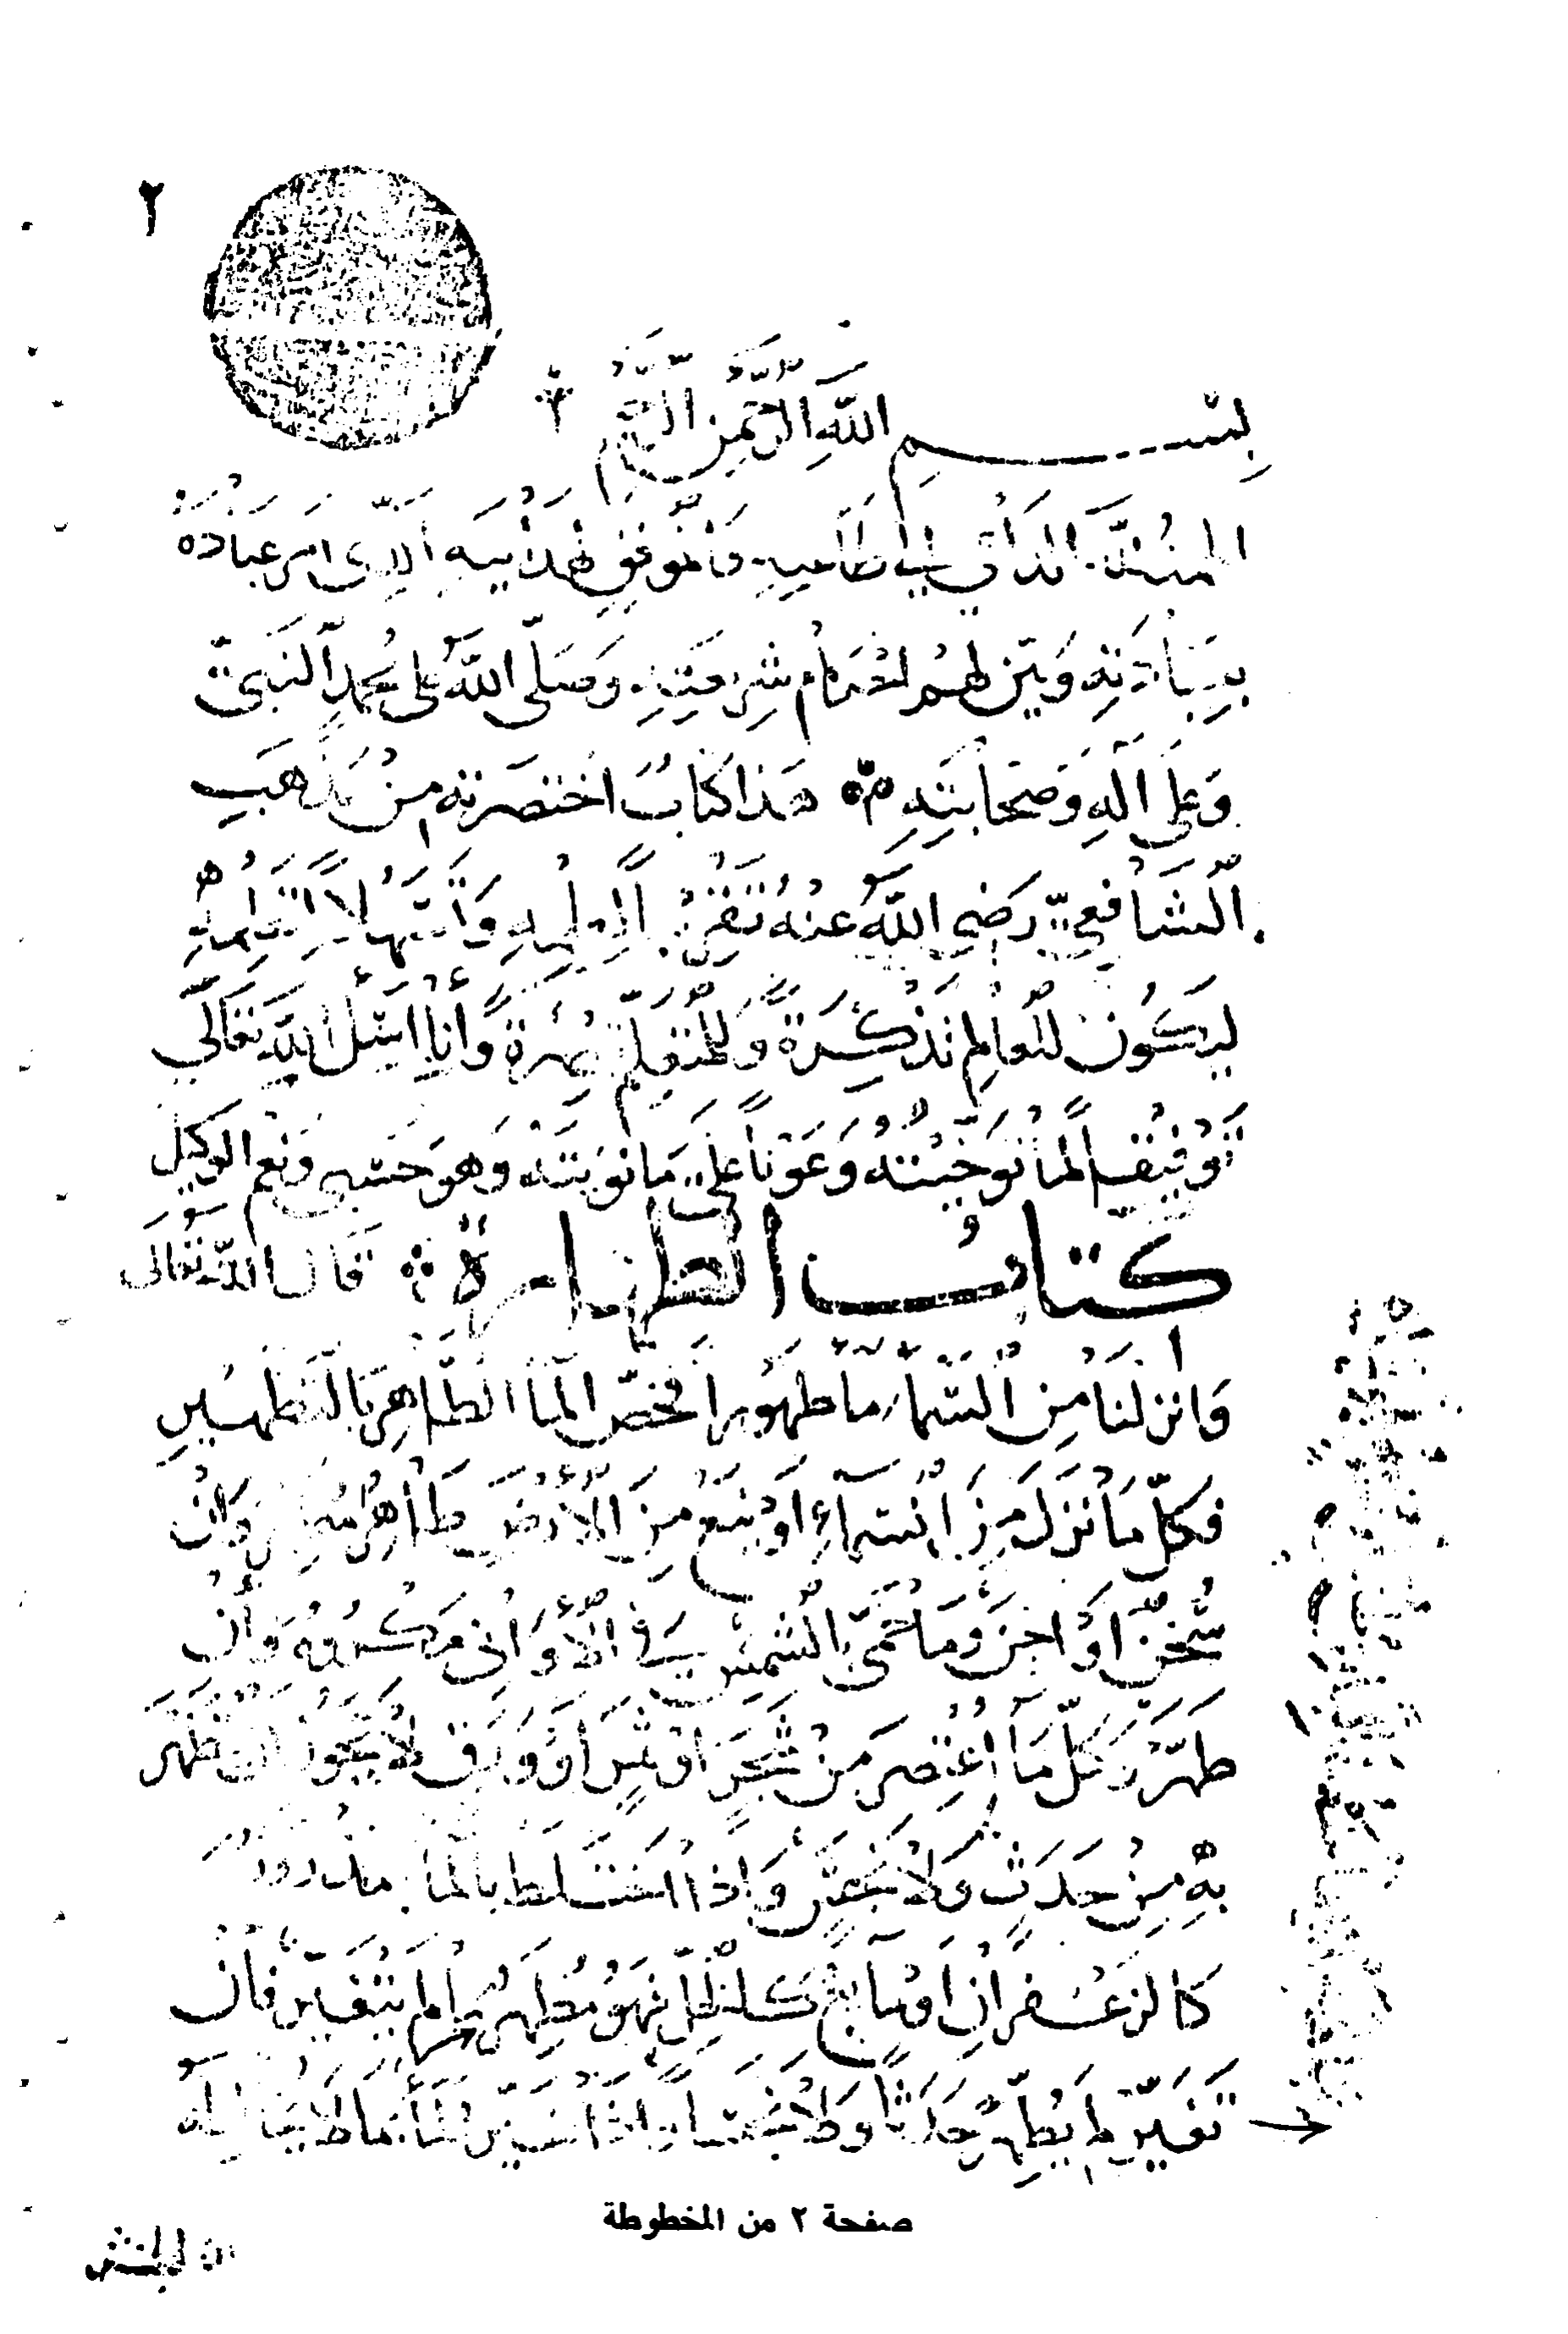 ٢
بِسْمِ اللَّهِ الرَّحْمَنِ الرَّحِيمِ
الحمد لله الداعي إلى طاعته والموفق لهدايته الذي امر عباده
بعبادته وبين لهم احكام شريعته وصلى الله على محمد النبي
وعلى آله وصحابته هذا كتاب اختصرته من مذهب
الشافعي رضي الله عنه تقريبا لمطلبه وتسهيلا لتعليمه
ليكون للعالم تذكرة وللمتعلم تبصرة وانا اسئل الله تعالى
توفيقا لما توخيته وعونا على ما نويته وهو حسبي ونعم الوكيل
كتاب الطهارة قال الله تعالى
وانزلنا من السماء ما طهورا فخص الما الطاهر بالتطهير
فكل ما نزل من السماء او نبع من الارض طاهر مطهر وان
سخن او اجن وما حمي بالشمس في الأواني مكروه وان
طهر وكل ما اعتصر من شجر او ثمر او ورق لا يجوز ان تطهر
به من حدث ولا نجس واذا اختلط بالما مذرور
كالزعفران او مايع كالخل فهو مطهر ما لم يتغير فان
تغير لم يطهر حدثا ولا نجسا واذا تغير الما بما طال
صفحة ٢ من المخطوطة